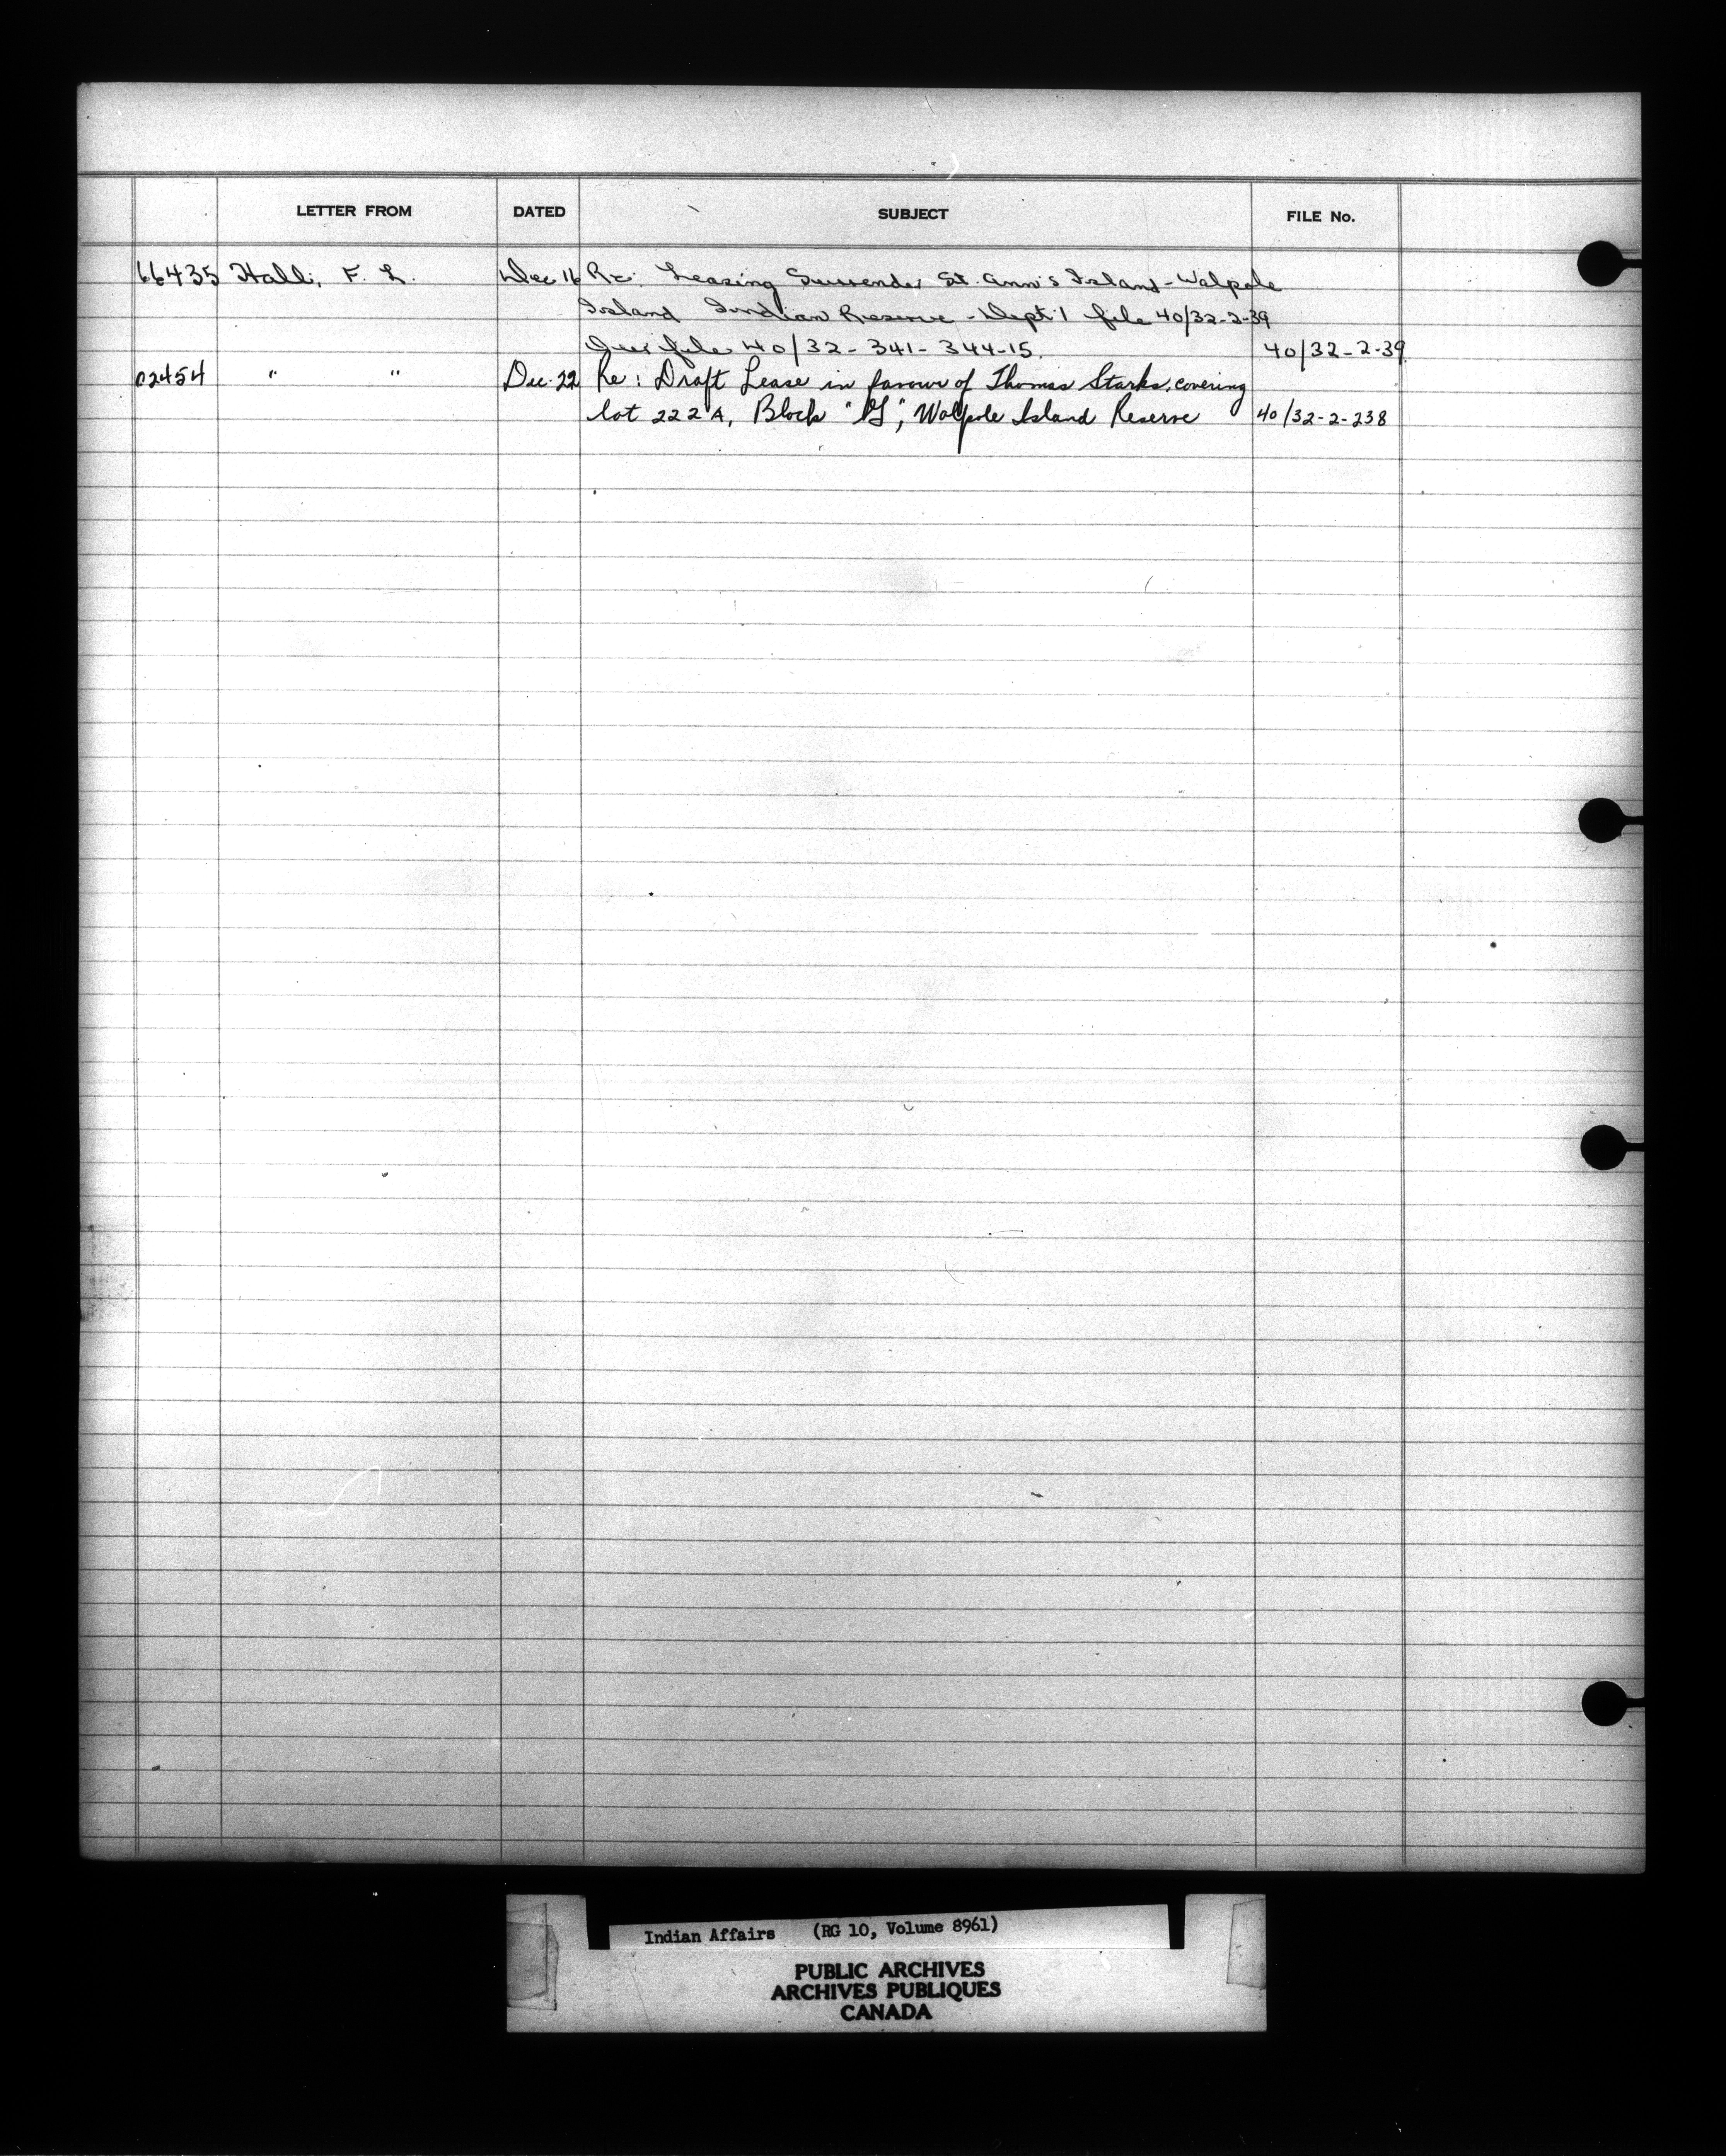 LETTER FROM DATED SUBJECT FILE No.
66435 Hall, F. L. Dec 16 Re: Leasing Surrender St. Ann's Island - Walpole
Island Indian Reserve - Dept'l file 40/32-2-39
Our file 40/32-341-344-15. 40/32-2-39
02454 " " Dec. 22 Re: Draft Lease in favour of Thomas Starks, covering
lot 222A, Block "G", Walpole Island Reserve 40/32-2-238
Indian Affairs (RG 10, Volume 8961)
PUBLIC ARCHIVES
ARCHIVES PUBLIQUES
CANADA